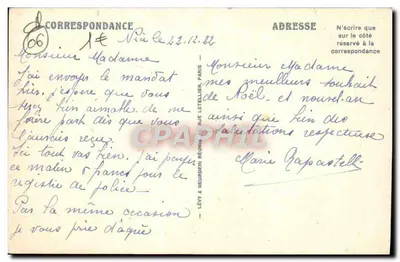 CORRESPONDANCE
ADRESSE
N'écrire que
sur le côté
réservé à la
correspondance
06
1€
Nice le 22.12.82
Monsieur Madame
J'ai envoyer le mandat
hier, j'espère que vous
serez bien aimable de me
faire part dès que vous
l'aurais reçu.
Ici tout vas bien. J'ai payer
ce matin 5 francs pour le
registre de police
Par la même occasion
je vous prie d'agrée
LÉVY & NEURDEIN RÉUNIS
RUE LETELLIER, PARIS
Monsieur Madame
mes meilleurs souhait
de Noël et nouvel an
ainsi que bien des
salutations respectueuse
Marie Rapastelli
PRICARTE